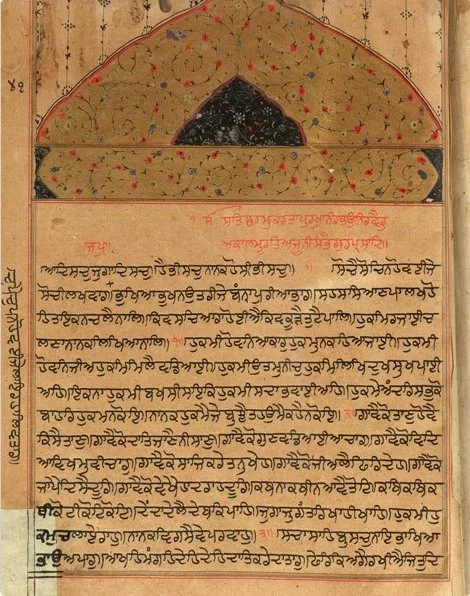 ੧ ੴ ਸਤਿਨਾਮੁਕਰਤਾਪੁਰਖੁਨਿਰਭਉਨਿਰਵੈਰੁ
ਅਕਾਲਮੂਰਤਿਅਜੂਨੀਸੈਭੰਗੁਰਪ੍ਰਸਾਦਿ॥
ਜਪੁ॥
ਆਦਿਸਚੁਜੁਗਾਦਿਸਚੁ॥ਹੈਭੀਸਚੁਨਾਨਕਹੋਸੀਭੀਸਚੁ॥ ॥ਸੋਚੈਸੋਚਿਨਹੋਵਈਜੇ
ਸੋਚੀਲਖਵਾਰ॥ਭੁਖਿਆਭੁਖਨਉਤਰੀਜੇਬੰਨਾਪੁਰੀਆਭਾਰ॥ਸਹਸਸਿਆਣਪਾਲਖਹੋ
ਹਿਤਇਕਨਚਲੈਨਾਲਿ॥ਕਿਵਸਚਿਆਰਾਹੋਈਐਕਿਵਕੂੜੈਤੁਟੈਪਾਲਿ॥ਹੁਕਮਿਰਜਾਈਚ
ਲਣਾਨਾਨਕਲਿਖਿਆਨਾਲਿ॥੧॥ਹੁਕਮੀਹੋਵਨਿਆਕਾਰਹੁਕਮੁਨਕਹਿਆਜਾਈ॥ਹੁਕਮੀ
ਹੋਵਨਿਜੀਅਹੁਕਮਿਮਿਲੈਵਡਿਆਈ॥ਹੁਕਮੀਉਤਮੁਨੀਚੁਹੁਕਮਿਲਿਖਿਦੁਖਸੁਖਪਾਈ
ਅਹਿ॥ਇਕਨਾਹੁਕਮੀਬਖਸੀਸਇਕਿਹੁਕਮੀਸਦਾਭਵਾਈਅਹਿ॥ਹੁਕਮੈਅੰਦਰਿਸਭੁਕੋ
ਬਾਹਰਿਹੁਕਮਨਕੋਇ॥ਨਾਨਕਹੁਕਮੈਜੇਬੁਝੈਤਹਉਮੈਕਹੈਨਕੋਇ॥੨॥ਗਾਵੈਕੋਤਾਣੁਹੋਵੈ
ਕਿਸੈਤਾਣੁ॥ਗਾਵੈਕੋਦਾਤਿਜਾਣੈਨੀਸਾਣੁ॥ਗਾਵੈਕੋਗੁਣਵਡਿਆਈਆਚਾਰ॥ਗਾਵੈਕੋਵਿਦਿ
ਆਵਿਖਮੁਵੀਚਾਰੁ॥ਗਾਵੈਕੋਸਾਜਿਕਰੇਤਨੁਖੇਹ॥ਗਾਵੈਕੋਜੀਅਲੈਫਿਰਿਦੇਹ॥ਗਾਵੈਕੋ
ਜਾਪੈਦਿਸੈਦੂਰਿ॥ਗਾਵੈਕੋਵੇਖੈਹਾਦਰਾਹਦੂਰਿ॥ਕਥਨਾਕਥੀਨਆਵੈਤੋਟਿ॥ਕਥਿਕਥਿਕ
ਥੀਕੋਟੀਕੋਟਿਕੋਟਿ॥ਦੇਂਦਾਦੇਲੈਦੇਥਕਿਪਾਹਿ॥ਜੁਗਾਜੁਗੰਤਰਿਖਾਹੀਖਾਹਿ॥ਹੁਕਮੀਹੁ
ਕਮੁਚਲਾਏਰਾਹੁ॥ਨਾਨਕਵਿਗਸੈਵੇਪਰਵਾਹੁ॥੩॥ਸਾਚਾਸਾਹਿਬੁਸਾਚੁਨਾਇਭਾਖਿਆ
ਭਾਉਅਪਾਰੁ॥ਆਖਹਿਮੰਗਹਿਦੇਹਿਦੇਹਿਦਾਤਿਕਰੇਦਾਤਾਰੁ॥ਫੇਰਿਕਿਅਗੈਰਖੀਐਜਿਤੁਦਿ
ਚੁਪੈਚੁਪਨਹੋਵਈਜੇਲਾਇਰਹਾਲਿਵਤਾਰ॥